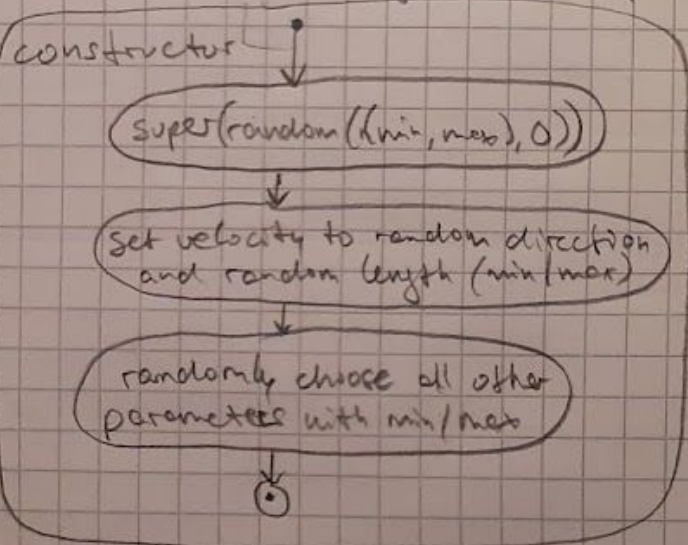 constructor
super(random((min, max), 0))
set velocity to random direction
and random length (min/max)
randomly choose all other
parameters with min/max